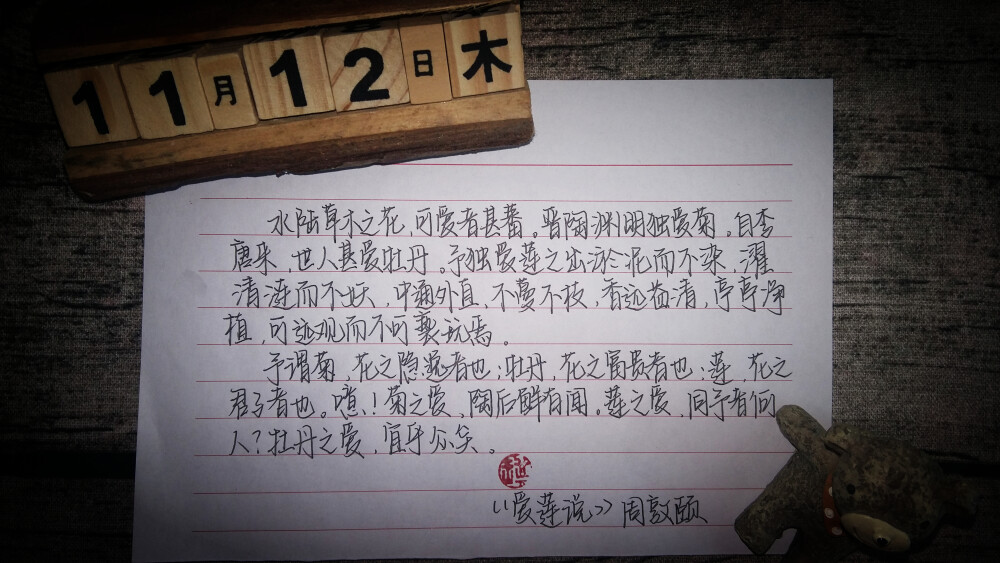 11月12日 木
水陆草木之花,可爱者甚蕃。晋陶渊明独爱菊。自李
唐来,世人甚爱牡丹。予独爱莲之出淤泥而不染,濯
清涟而不妖,中通外直,不蔓不枝,香远益清,亭亭净
植,可远观而不可亵玩焉。
予谓菊,花之隐逸者也;牡丹,花之富贵者也;莲,花之
君子者也。噫!菊之爱,陶后鲜有闻。莲之爱,同予者何
人?牡丹之爱,宜乎众矣。
《爱莲说》周敦颐